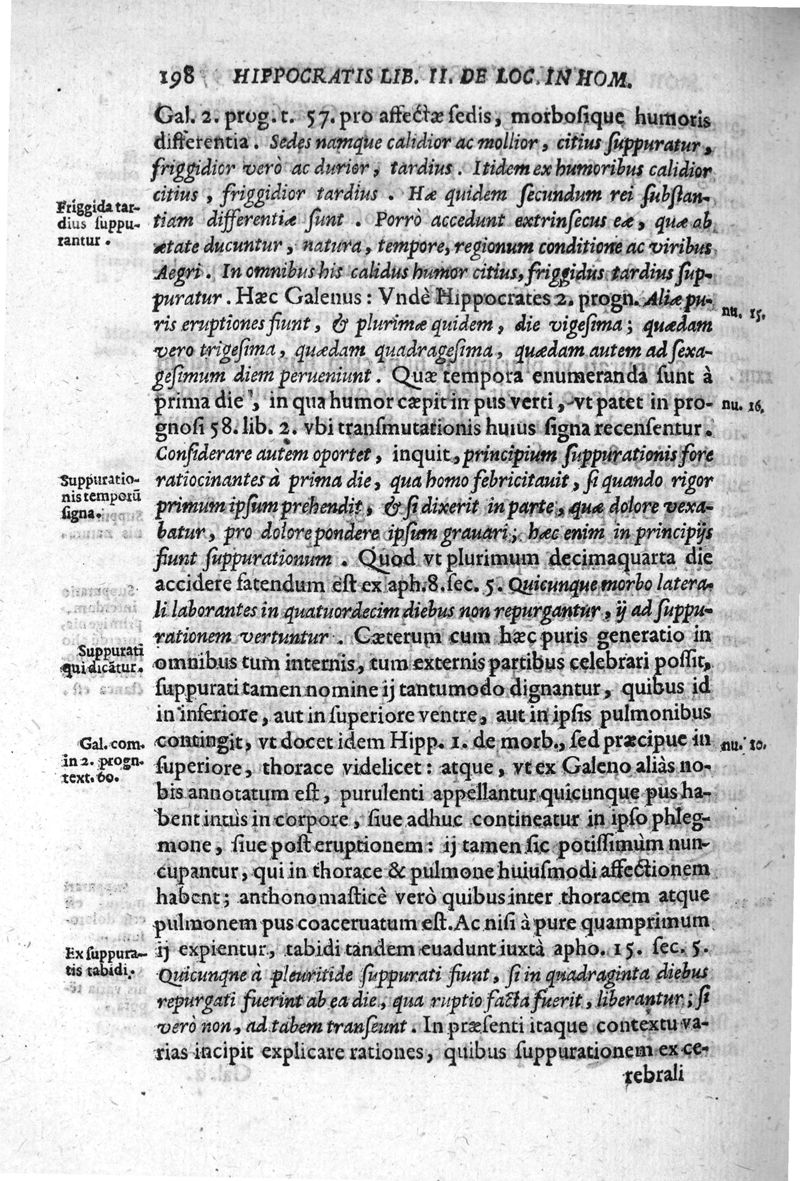 198 HIPPOCRATIS LIB. II. DE LOC. IN HOM.
Gal. 2. prog. t. 57. pro affectæ sedis, morbosique humoris
differentia. Sedes namque calidior ac mollior, citius suppuratur,
friggidior verò ac durior, tardius. Itidem ex humoribus calidior
citius, friggidior tardius. Hæ quidem secundum rei substan-
Friggida tar-
dius suppu-
rantur.
tiam differentiæ sunt. Porrò accedunt extrinsecus eæ, quæ ab
ætate ducuntur, natura, tempore, regionum conditione ac viribus
Aegri. In omnibus his calidus humor citius, friggidus tardius sup-
puratur. Hæc Galenus: Vndè Hippocrates 2. progn. Aliæ pu-
nu. 15.
ris eruptiones fiunt, & plurimæ quidem, die vigesima; quædam
vero trigesima, quædam quadragesima, quædam autem ad sexa-
gesimum diem perueniunt. Quæ tempora enumeranda sunt à
prima die, in qua humor cæpit in pus verti, vt patet in pro-
nu. 16.
gnosi 58. lib. 2. vbi transmutationis huius signa recensentur.
Considerare autem oportet, inquit, principium suppurationis fore
Suppuratio-
nis temporū
signa.
ratiocinantes à prima die, qua homo febricitauit, si quando rigor
primum ipsum prehendit, & si dixerit in parte, quæ dolore vexa-
batur, pro dolore pondere ipsum grauari; hæc enim in principijs
fiunt suppurationum. Quod vt plurimum decimaquarta die
accidere fatendum est ex aph. 8. sec. 5. Quicunque morbo latera-
li laborantes in quatuordecim diebus non repurgantur, ij ad suppu-
rationem vertuntur. Cæterum cum hæc puris generatio in
Suppurati
qui dicātur.
omnibus tum internis, tum externis partibus celebrari possit,
suppurati tamen nomine ij tantumodo dignantur, quibus id
in inferiore, aut in superiore ventre, aut in ipsis pulmonibus
contingit, vt docet idem Hipp. 1. de morb., sed præcipue in
nu. 10.
Gal. com.
in 2. progn.
text. 60.
superiore, thorace videlicet: atque, vt ex Galeno aliàs no-
bis annotatum est, purulenti appellantur quicunque pus ha-
bent intùs in corpore, siue adhuc contineatur in ipso phleg-
mone, siue post eruptionem: ij tamen sic potissimùm nun-
cupantur, qui in thorace & pulmone huiusmodi affectionem
habent; anthonomasticè verò quibus inter thoracem atque
pulmonem pus coaceruatum est. Ac nisi à pure quamprimum
Ex suppura-
tis tabidi.
ij expientur, tabidi tandem euadunt iuxtà apho. 15. sec. 5.
Quicunqne à pleuritide suppurati fiunt, si in quadraginta diebus
repurgati fuerint ab ea die, qua ruptio facta fuerit, liberantur; si
verò non, ad tabem transeunt. In præsenti itaque contextu va-
rias incipit explicare rationes, quibus suppurationem ex ce-
rebrali